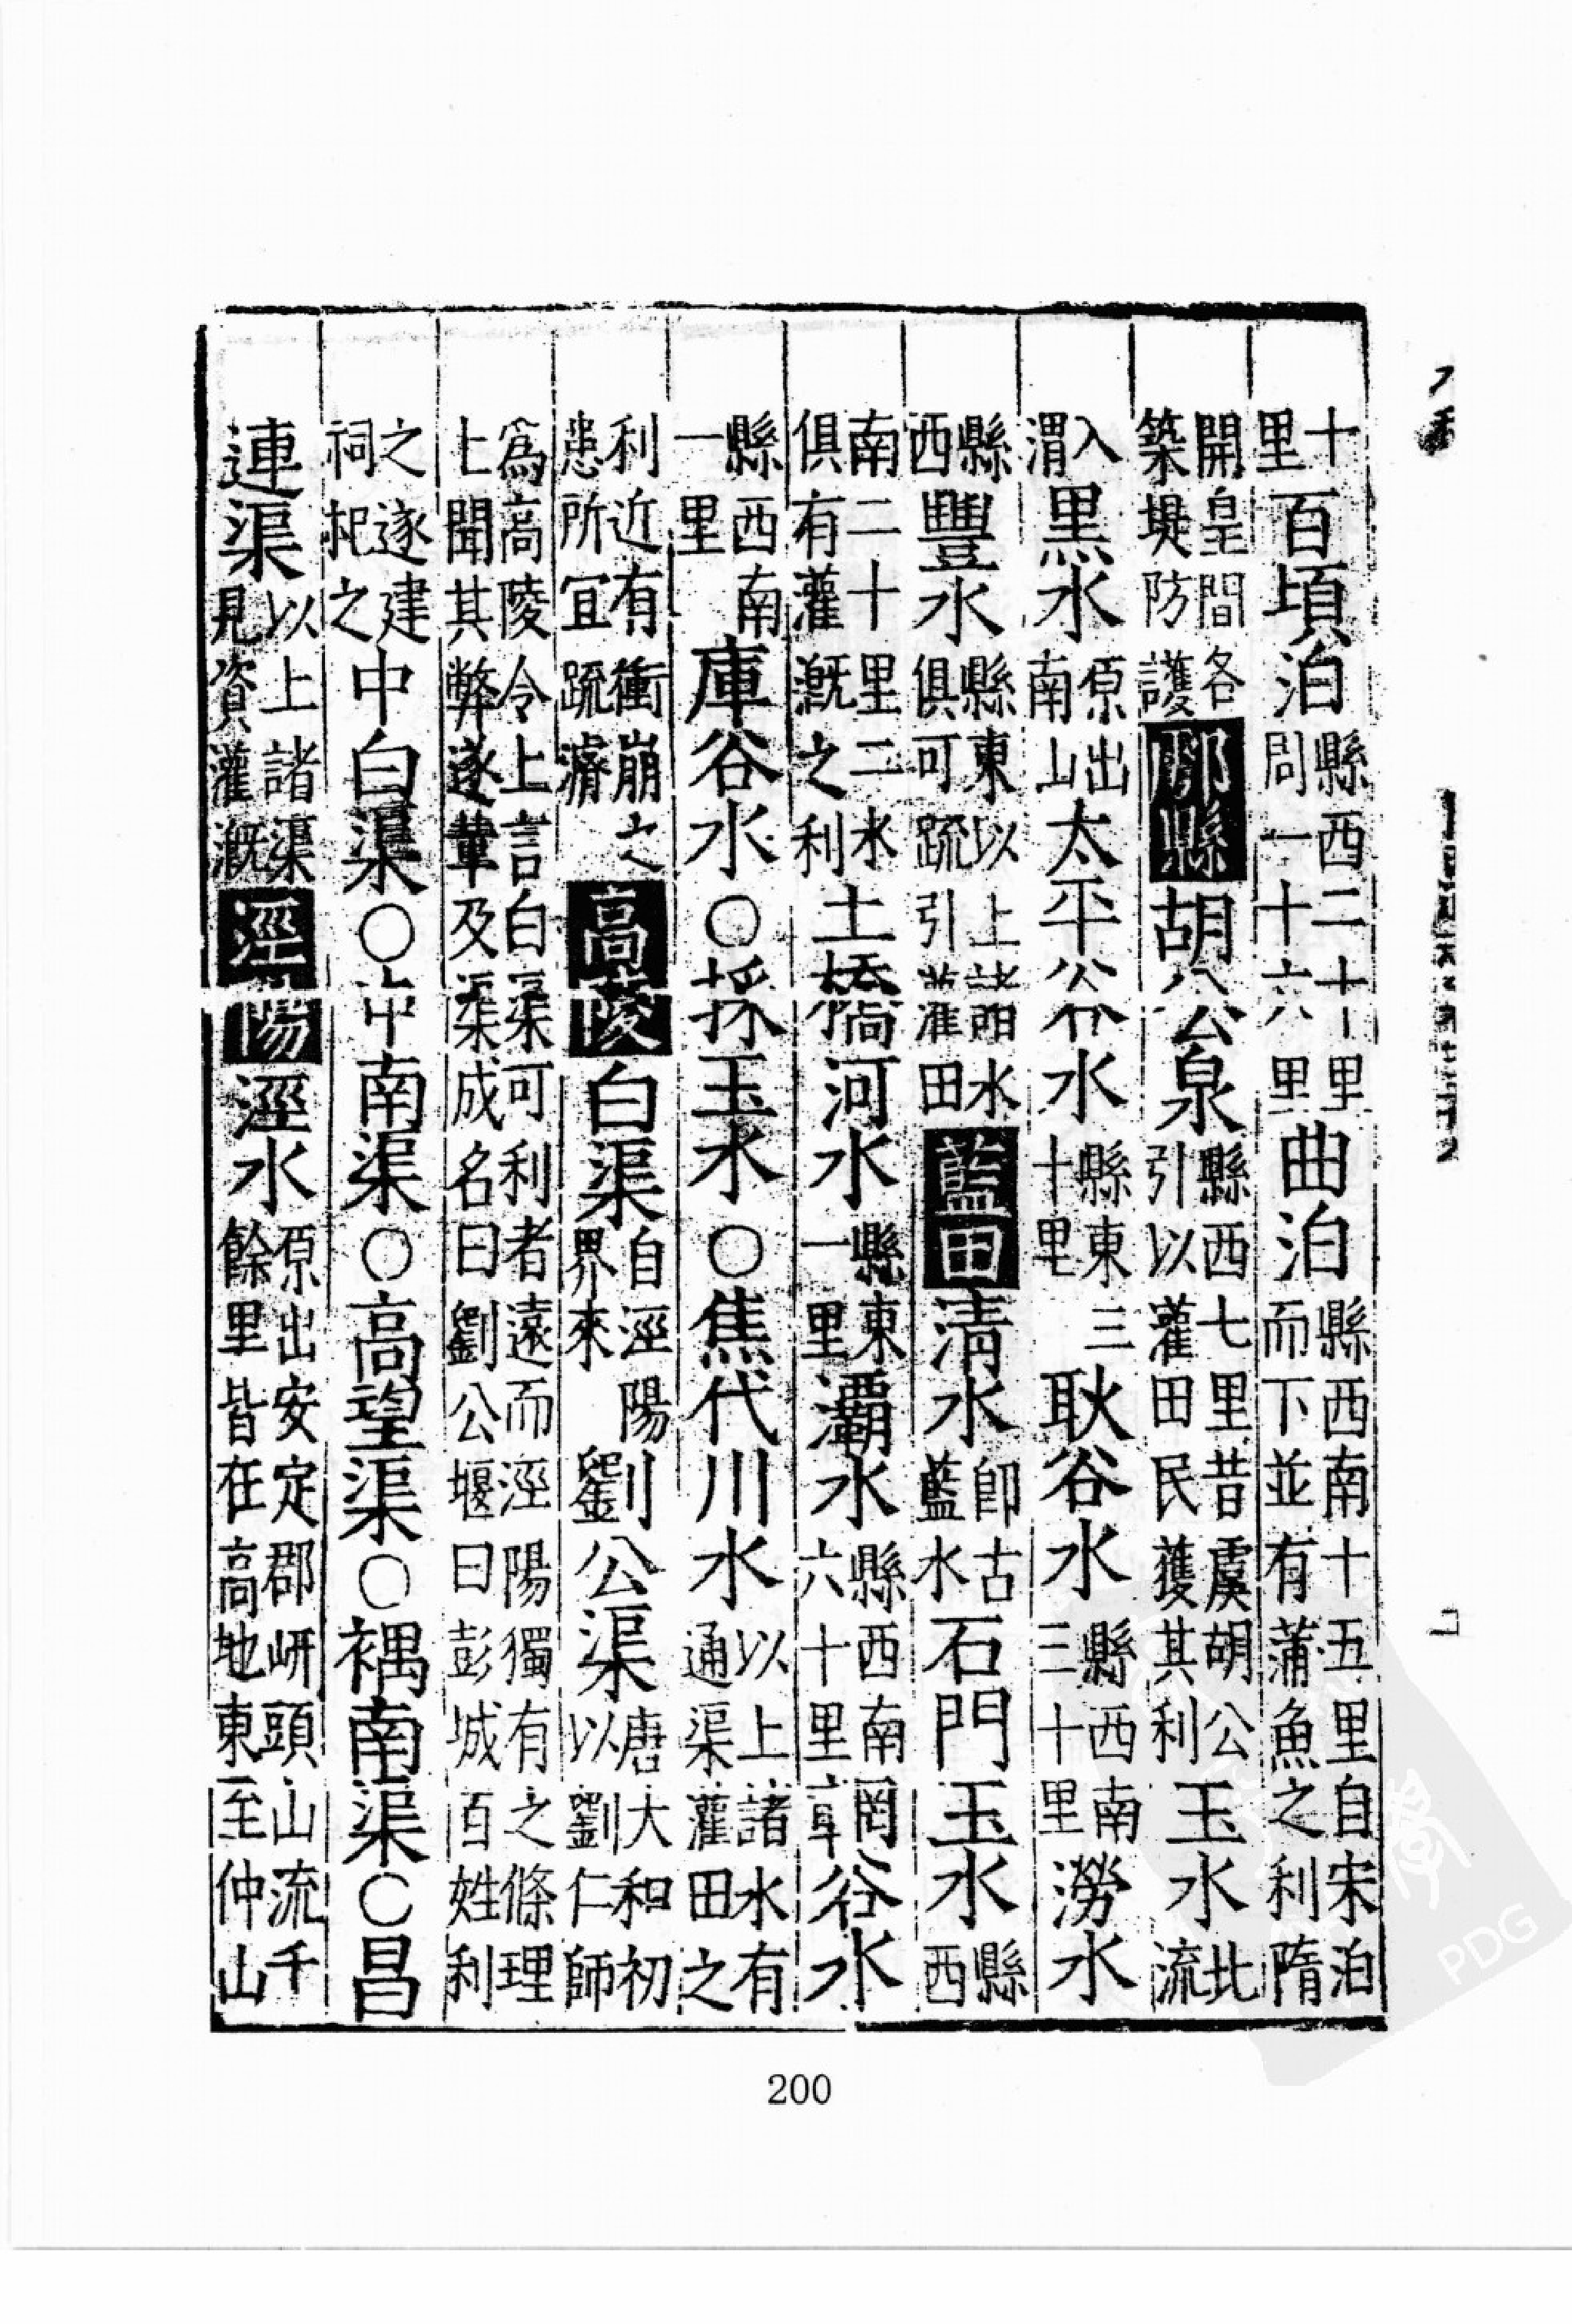 十里百頃泊縣西二十里周一十六里曲泊縣西南十五里自宋泊而下並有蒲魚之利隋
開皇間各築堤防護鄠縣胡公泉縣西七里昔虞胡公引以灌田民獲其利玉水北流
入渭黑水原出南山太平谷水縣東三十里耿谷水縣西南三十里澇水
縣西豐水縣東以上諸水俱可疏引灌田藍田清水即古藍水石門玉水縣西
南二十里二水俱有灌漑之利土橋河水縣東一里灞水縣西南六十里輞谷水
縣西南一里庫谷水○採玉水○焦代川水以上諸水有通渠灌田之
利近有衝崩之患所宜疏濬高陵白渠自涇陽界來劉公渠唐大和初以劉仁師
爲高陵令上言白渠可利者遠而涇陽獨有之條理上聞其弊遂葺及渠成名曰劉公堰曰彭城百姓利
之遂建祠祀之中白渠○中南渠○高望渠○禑南渠○昌
連渠以上諸渠見資灌漑涇陽涇水原出安定郡岍頭山流千餘里皆在高地東至仲山
200
PDG